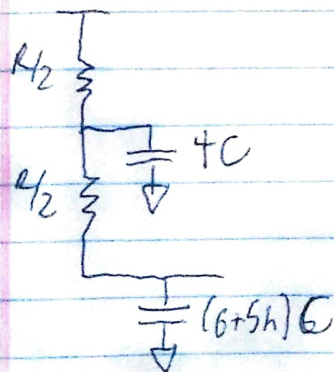 R/2
4C
R/2
(6+5h)C